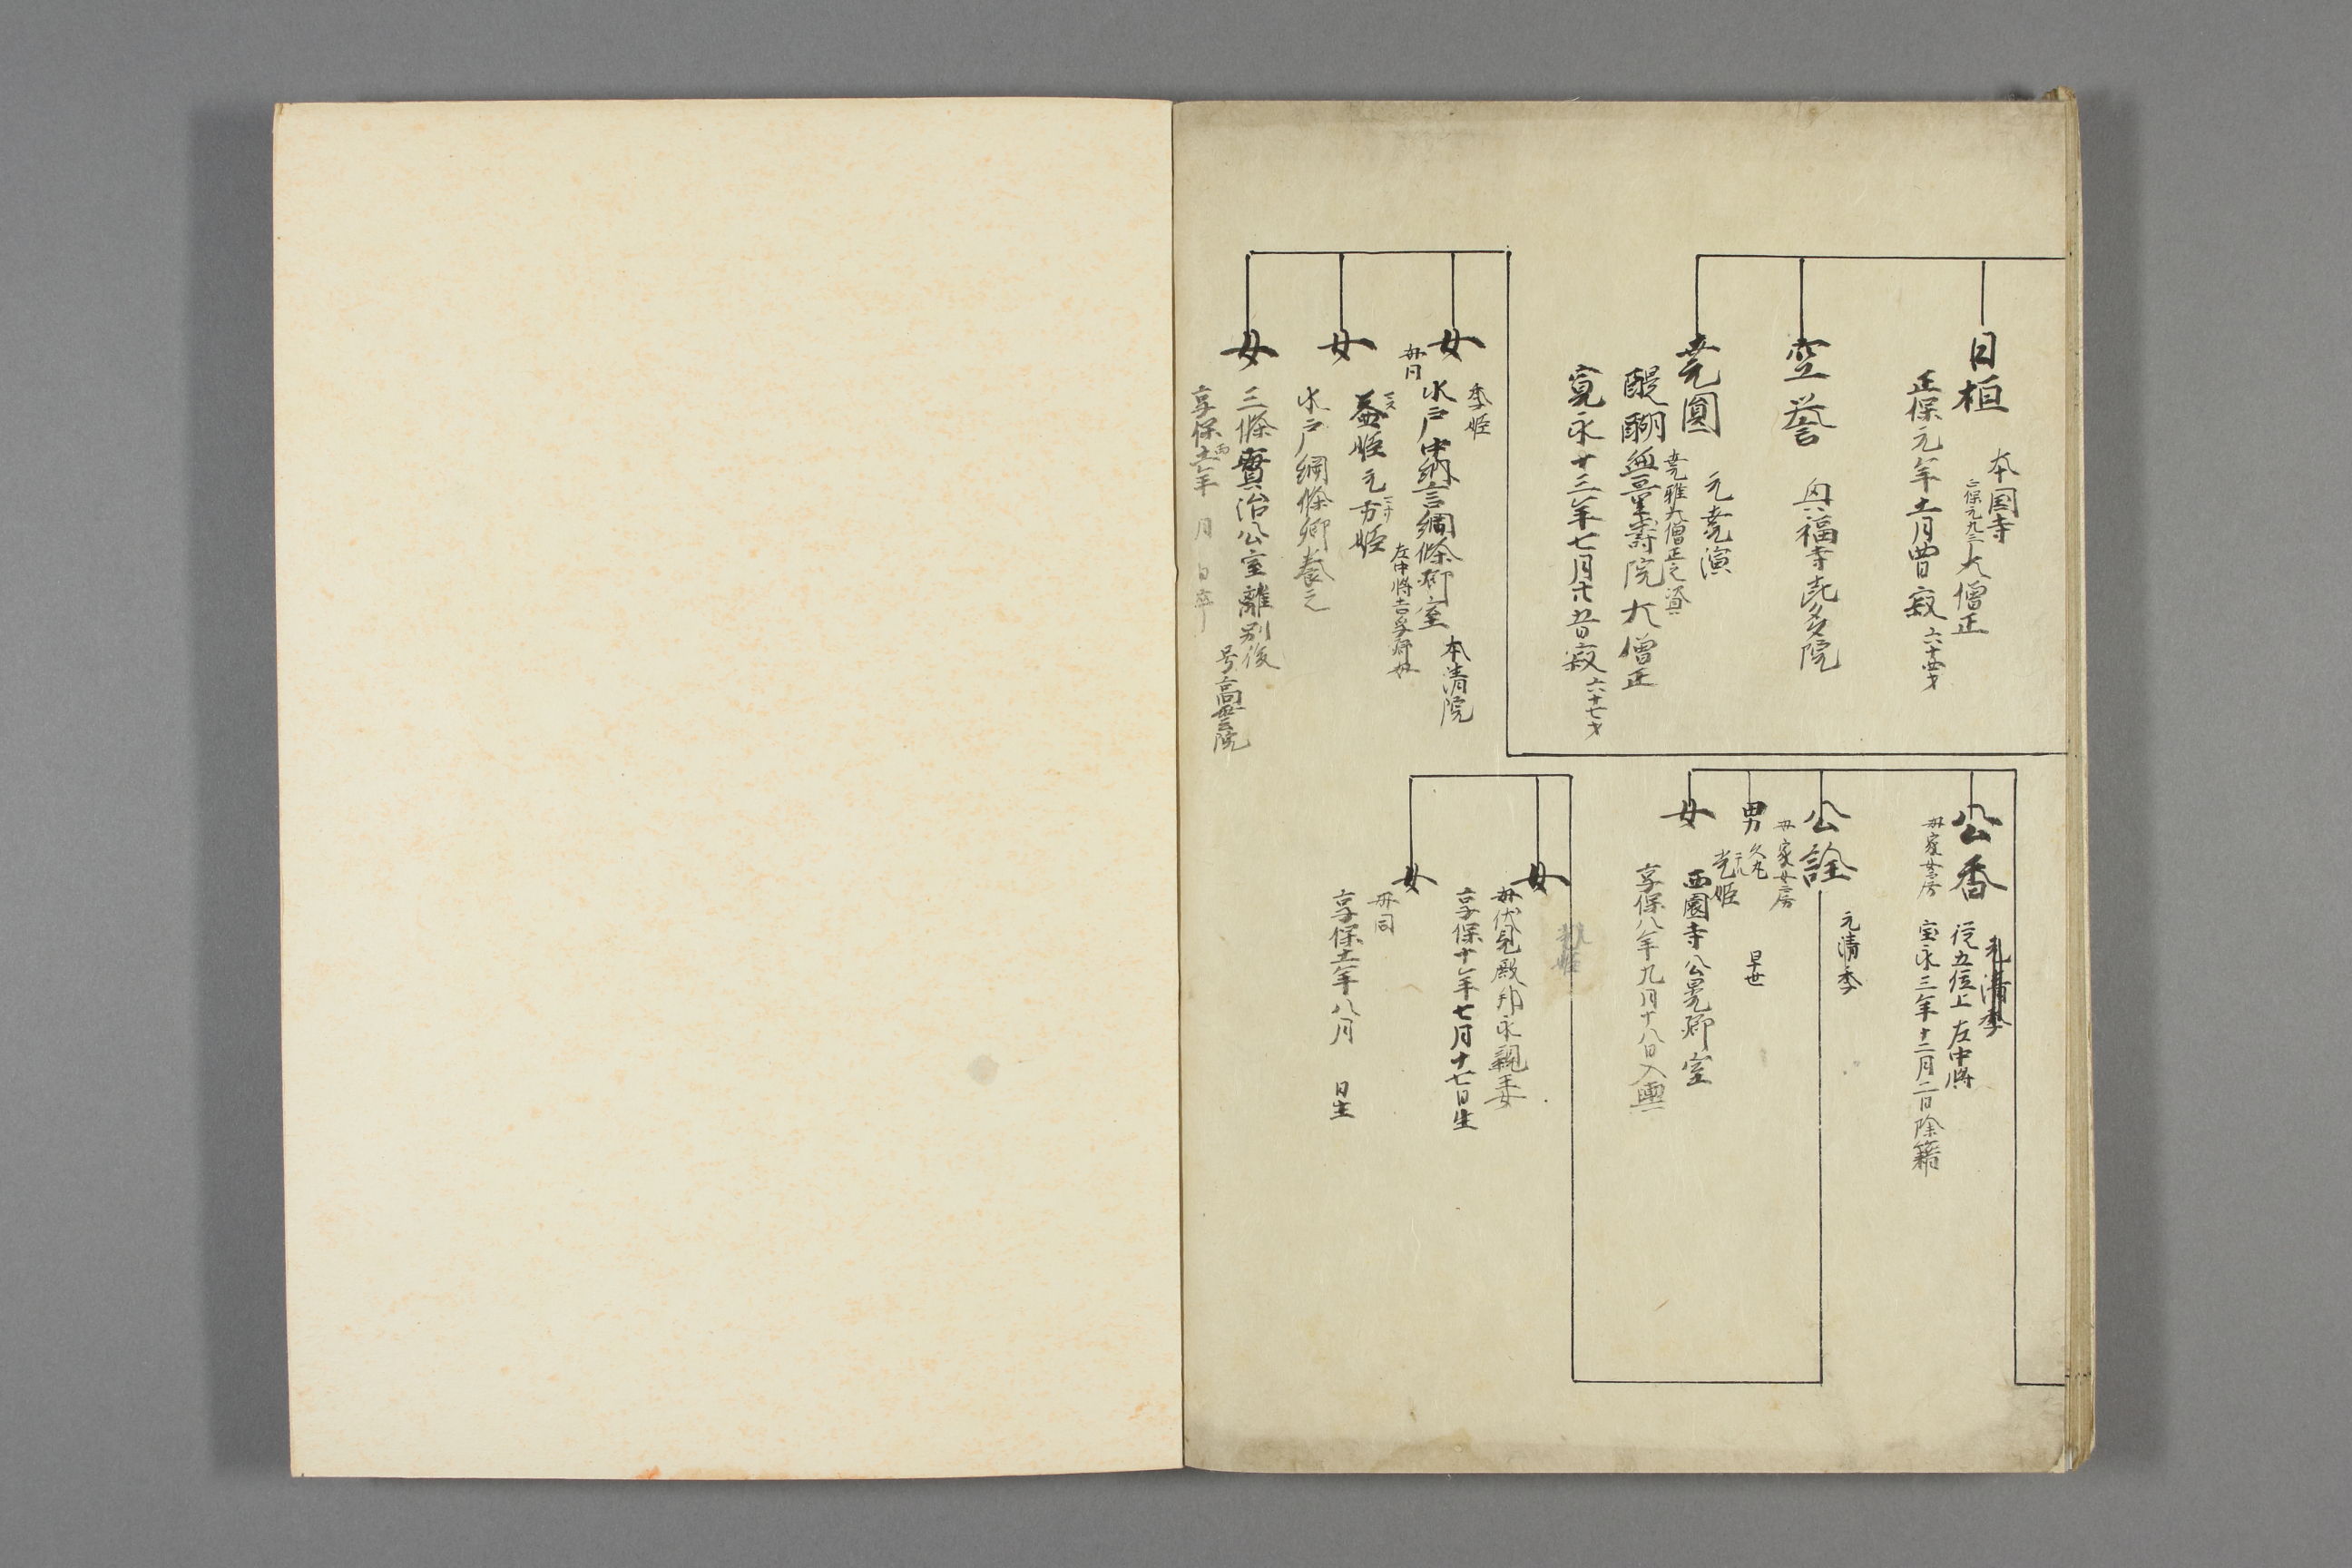 日桓
本国寺
大僧正
正保元年十一月四日寂
六十四才
空誉
興福寺
尭圓
元尭演
尭雅大僧正之資
醍醐無量壽院大僧正
寛永十三年七月廿五日寂
六十七才
女
季姫
水戸中納言綱條卿室
本清院
左中將吉孚卿母
母同
女
益姫元市姫
水戸綱條卿養之
女
三條實治公室離別後
号高雲院
享保十一年 月 日卒
公香
元清季
従五位上左中將
宝永三年十二月二日除籍
母家女房
公詮
元清季
母家女房
男
久丸
早世
女
光姫
西園寺公晃卿室
享保八年九月十八日入輿
女
母伏見殿邦永親王女
享保十年七月十七日生
女
母同
享保十一年八月 日生